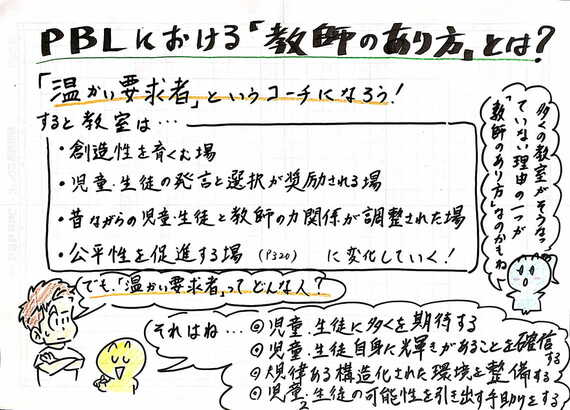 PBLにおける「教師のあり方」とは?
「温かい要求者」というコーチになろう!
すると教室は…
・創造性を育くむ場
・児童・生徒の発言と選択が奨励される場
・昔ながらの児童・生徒と教師の力関係が調整された場
・公平性を促進する場 (P320) に変化していく!
多くの教室がそうなっ
ていない理由の一つが
「教師のあり方」なのかもね
でも、「温かい要求者」ってどんな人?
それはね…
◎児童・生徒に多くを期待する
◎児童・生徒自身に光輝きがあることを確信
する
◎規律ある構造化された環境を整備する
◎児童・生徒の可能性を引き出す手助りをする
2